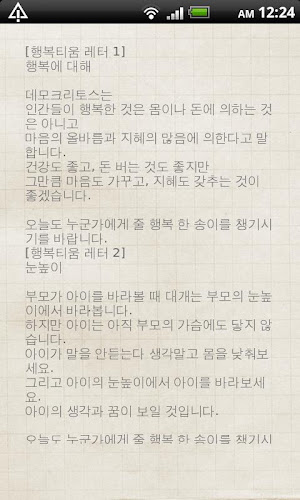 AM 12:24
[행복티움 레터 1]
행복에 대해
데모크리토스는
인간들이 행복한 것은 몸이나 돈에 의하는 것
은 아니고
마음의 올바름과 지혜의 많음에 의한다고 말
합니다.
건강도 좋고, 돈 버는 것도 좋지만
그만큼 마음도 가꾸고, 지혜도 갖추는 것이
좋겠습니다.
오늘도 누군가에게 줄 행복 한 송이를 챙기시
기를 바랍니다.
[행복티움 레터 2]
눈높이
부모가 아이를 바라볼 때 대개는 부모의 눈높
이에서 바라봅니다.
하지만 아이는 아직 부모의 가슴에도 닿지 않
습니다.
아이가 말을 안듣는다 생각말고 몸을 낮춰보
세요.
그리고 아이의 눈높이에서 아이를 바라보세
요.
아이의 생각과 꿈이 보일 것입니다.
오늘도 누군가에게 줄 행복 한 송이를 챙기시